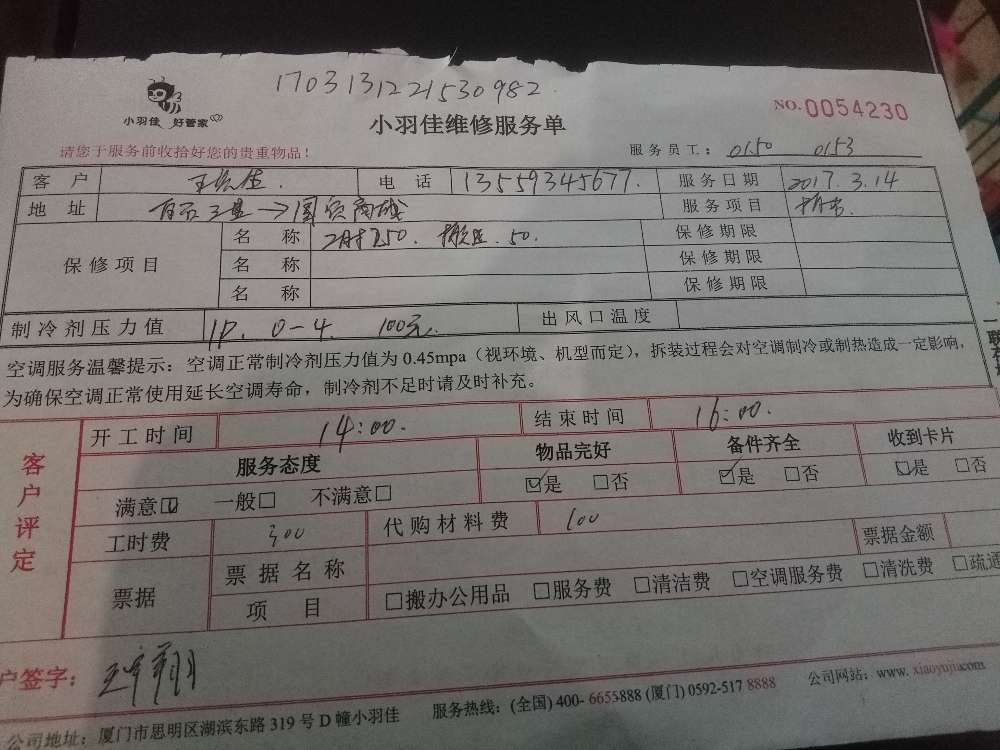 1703131221530982
小羽佳 好管家
NO.0054230
小羽佳维修服务单
请您于服务前收拾好您的贵重物品！
服务员工： 0150 0153
客户 电话 13559345677. 服务日期 2017.3.14
地址 服务项目
保修项目 名称 50. 50. 保修期限
名称 保修期限
名称 保修期限
制冷剂压力值 1P. 0-4 100元. 出风口温度
空调服务温馨提示：空调正常制冷剂压力值为 0.45mpa（视环境、机型而定），拆装过程会对空调制冷或制热造成一定影响，
为确保空调正常使用延长空调寿命，制冷剂不足时请及时补充。
客户评定
开工时间 14:00. 结束时间 16:00.
服务态度 物品完好 备件齐全 收到卡片
满意☑ 一般□ 不满意□ ☑是 □否 ☑是 □否 ☑是 □否
工时费 300 代购材料费 100 票据金额
票据 票据名称
项目 □搬办公用品 □服务费 □清洁费 □空调服务费 □清洗费 □疏通
户签字：
公司地址：厦门市思明区湖滨东路 319 号 D 幢小羽佳 服务热线：(全国) 400- 6655888 (厦门) 0592-517 8888 公司网站：www. xiaoyujia.com